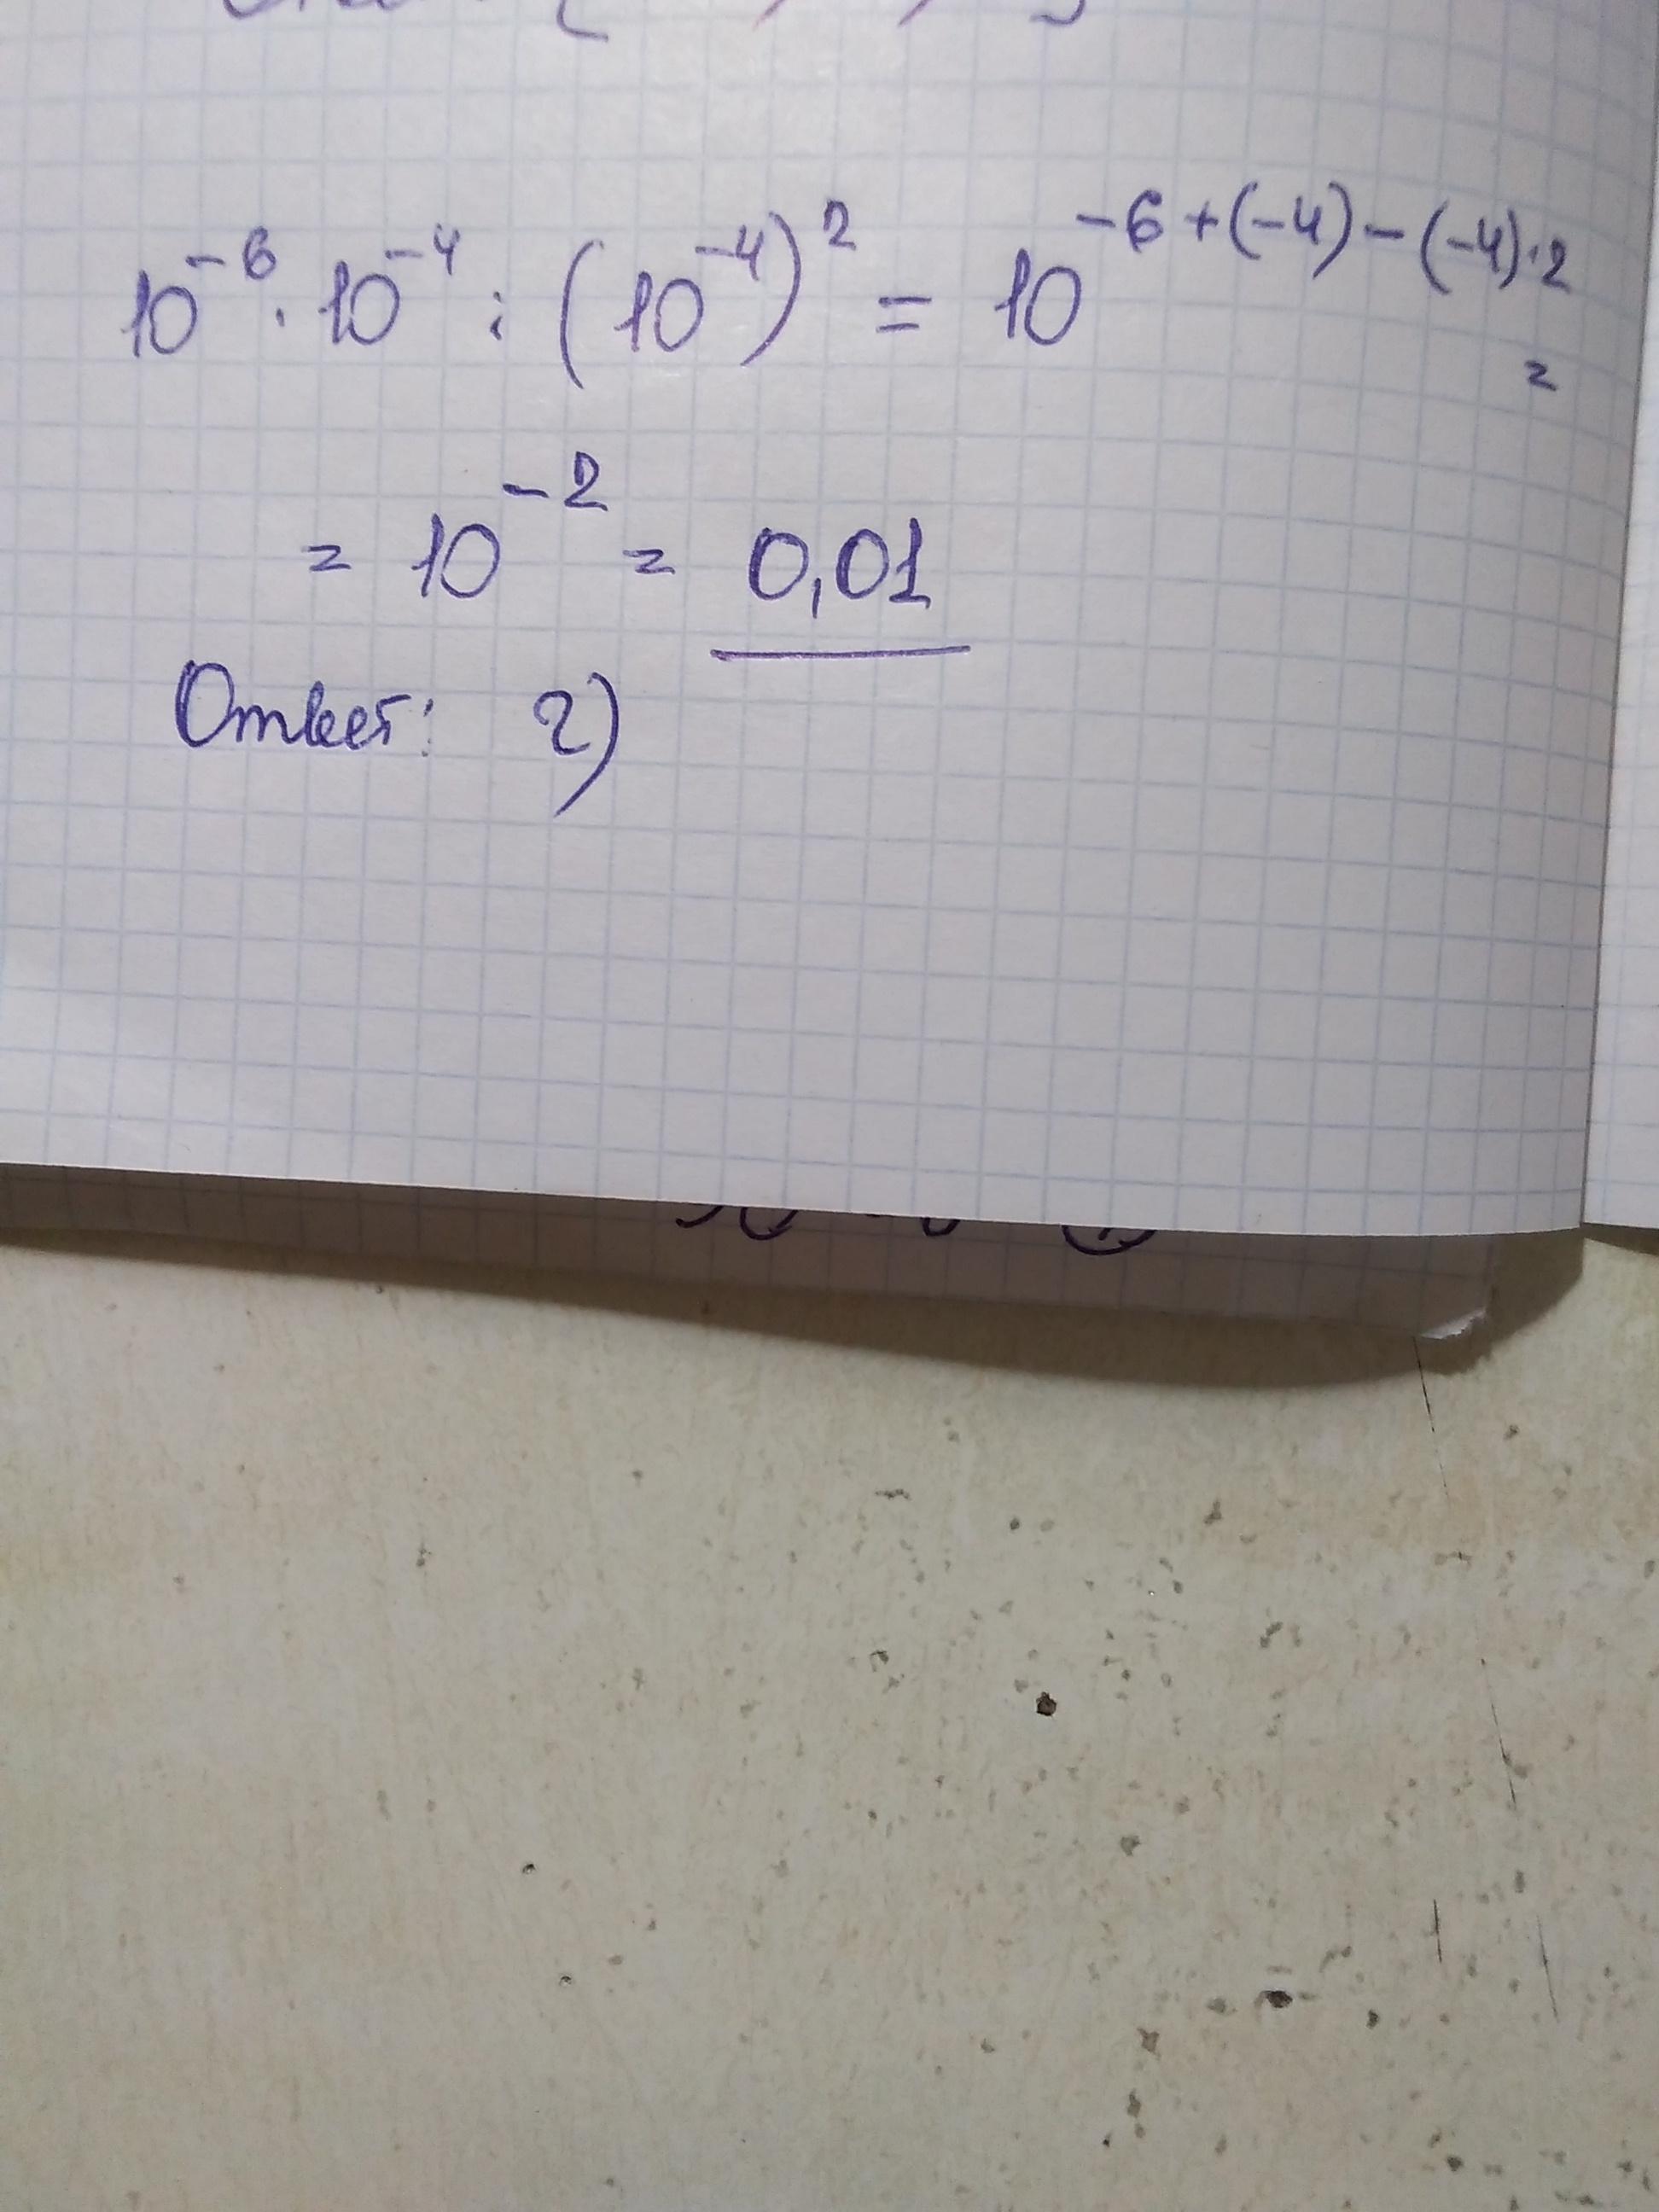 10⁻⁶ · 10⁻⁴ : (10⁻⁴)² = 10⁻⁶⁺⁽⁻⁴⁾⁻⁽⁻⁴⁾·² =
= 10⁻² = 0,01
Ответ: г)